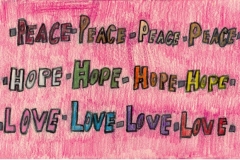 -PEACE-PEACE-PEACE-PEACE-
-HOPE-HOPE-HOPE-HOPE-
LOVE-LOVE-LOVE-LOVE-